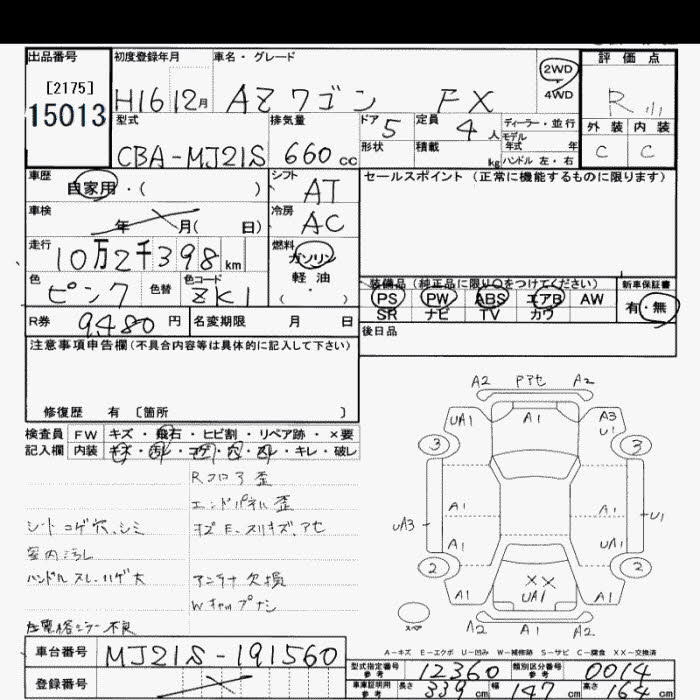 出品番号 初度登録年月 車名・グレード 評価点
[2175] 2WD
15013 H16 12月 AZワゴン FX 4WD R
型式 排気量 ドア 5 定員 4人 ディーラー・並行 外装 内装
モデル年式 年
CBA-MJ21S 660cc 形状 積載 kg ハンドル 左・右 C C
車歴 自家用・( ) シフト AT セールスポイント(正常に機能するものに限ります)
車検 年 月( 日) 冷房 AC
走行 10万2千398km 燃料 ガソリン
軽油
色 ピンク 色替 色コード ZK1 ( ・ ) 装備品(純正品に限り○をつけてください) 新車保証書
PS PW ABS エアB AW 有・無
SR ナビ TV カワ
R券 9,480円 名変期限 月 日 後日品
注意事項申告欄(不具合内容等は具体的に記入して下さい)
修復歴 有 〔箇所 〕
検査員 FW キズ・飛石・ヒビ割・リペア跡・×要
記入欄 内装 キズ・汚レ・コゲ・穴・スレ・キレ・破レ
Rフロア歪
エンドパネル歪
シートコゲ穴、シミ キズE、スリキズ、アセ
室内汚レ
ハンドルスレ、ハゲ大 アンテナ欠損
Wキャップナシ
左電格ミラー不良
A2 Pアセ A2
UA1 A1 A3
U1
3 3
A1 A1
UA3 U1
A1 UA1
2 2
××
A1 UA1 A1
スペア
A2 A1 A2
A-キズ E-エクボ U-凹み W-補修跡 S-サビ C-腐食 XX-交換済
車台番号 MJ21S-191560
型式指定番号 参考 12360 類別区分番号 参考 0014
登録番号
車庫証明用 参考 長さ 339cm 幅 147cm 高さ 164cm